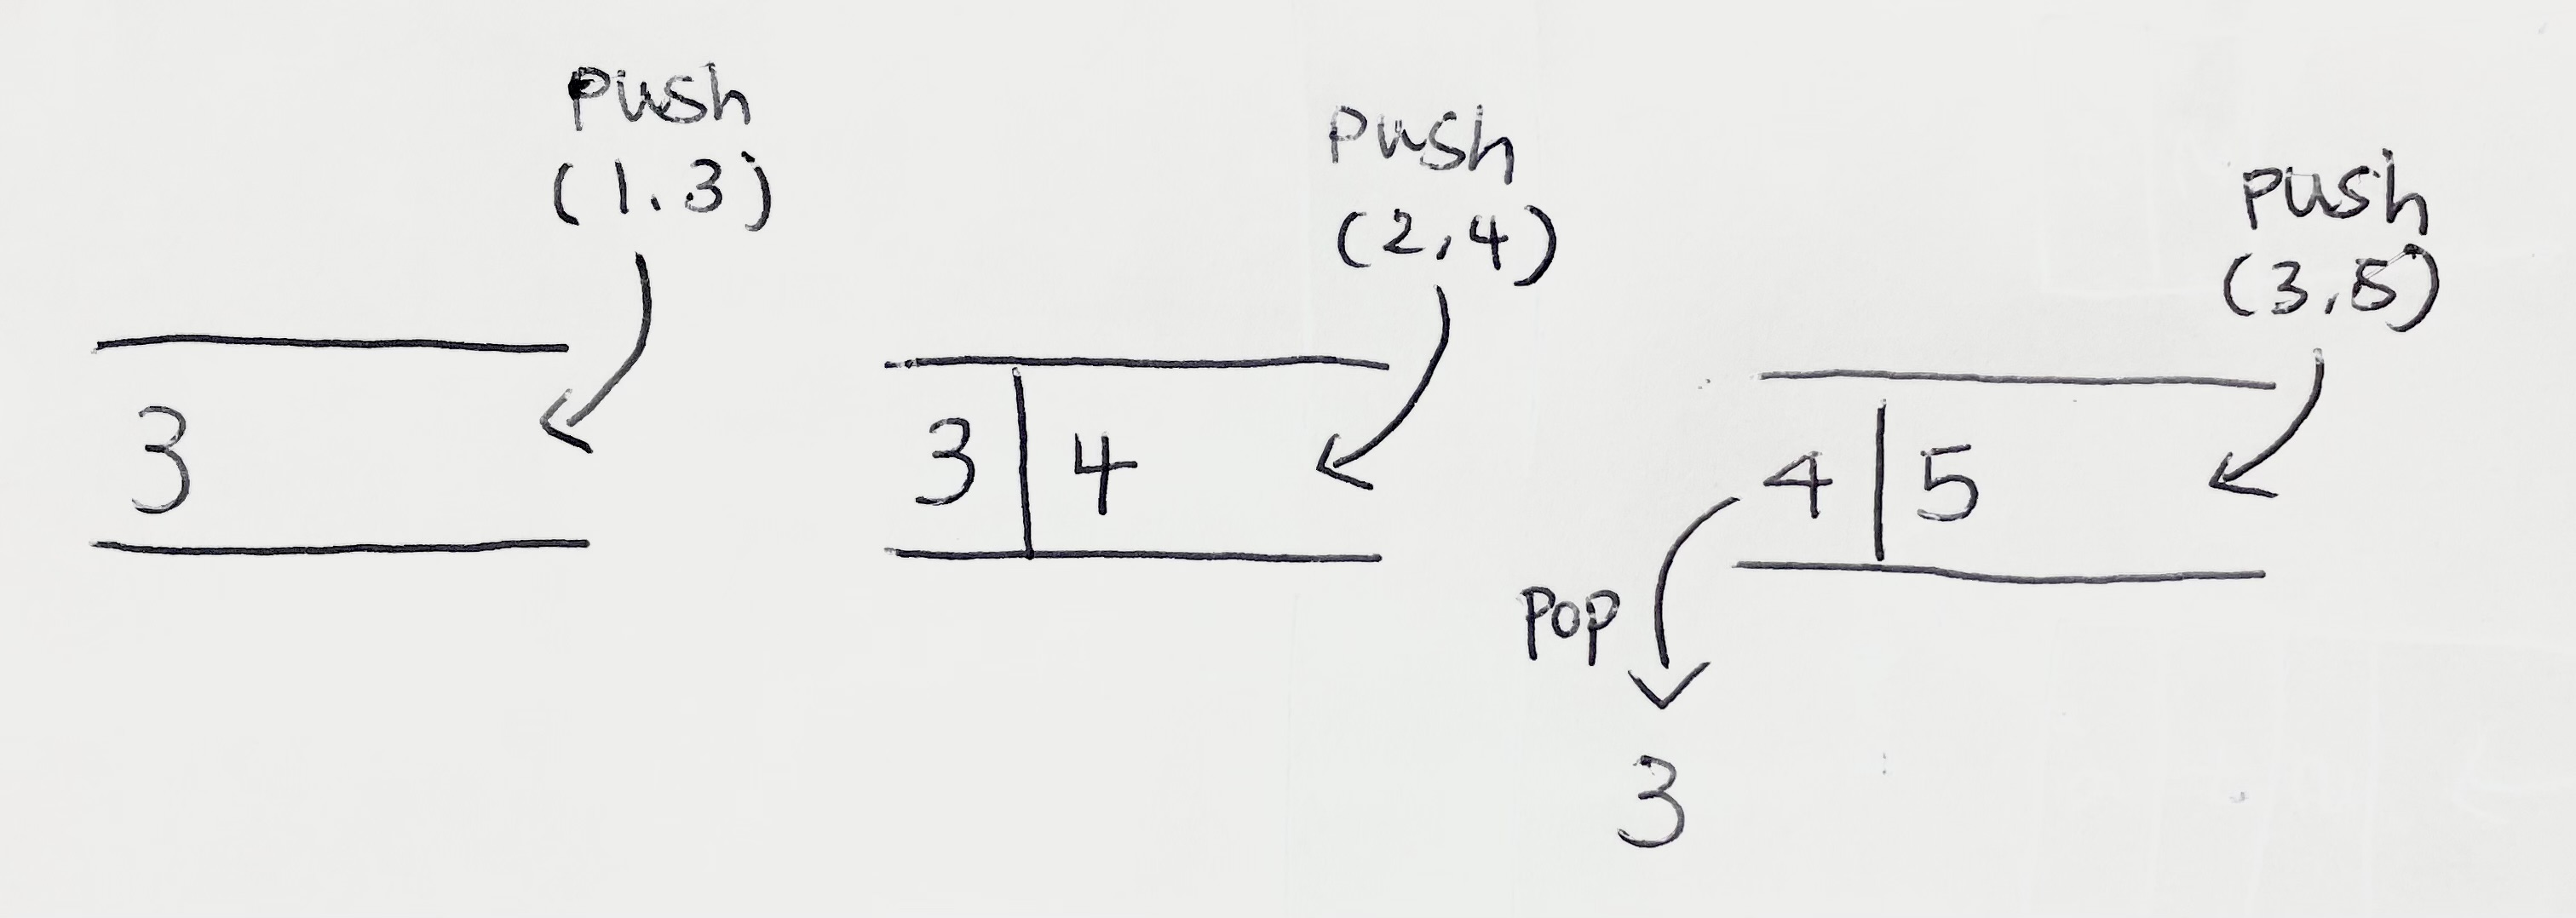 Push
(1.3)
3
Push
(2,4)
3 4
Push
(3,5)
4 5
POP
3